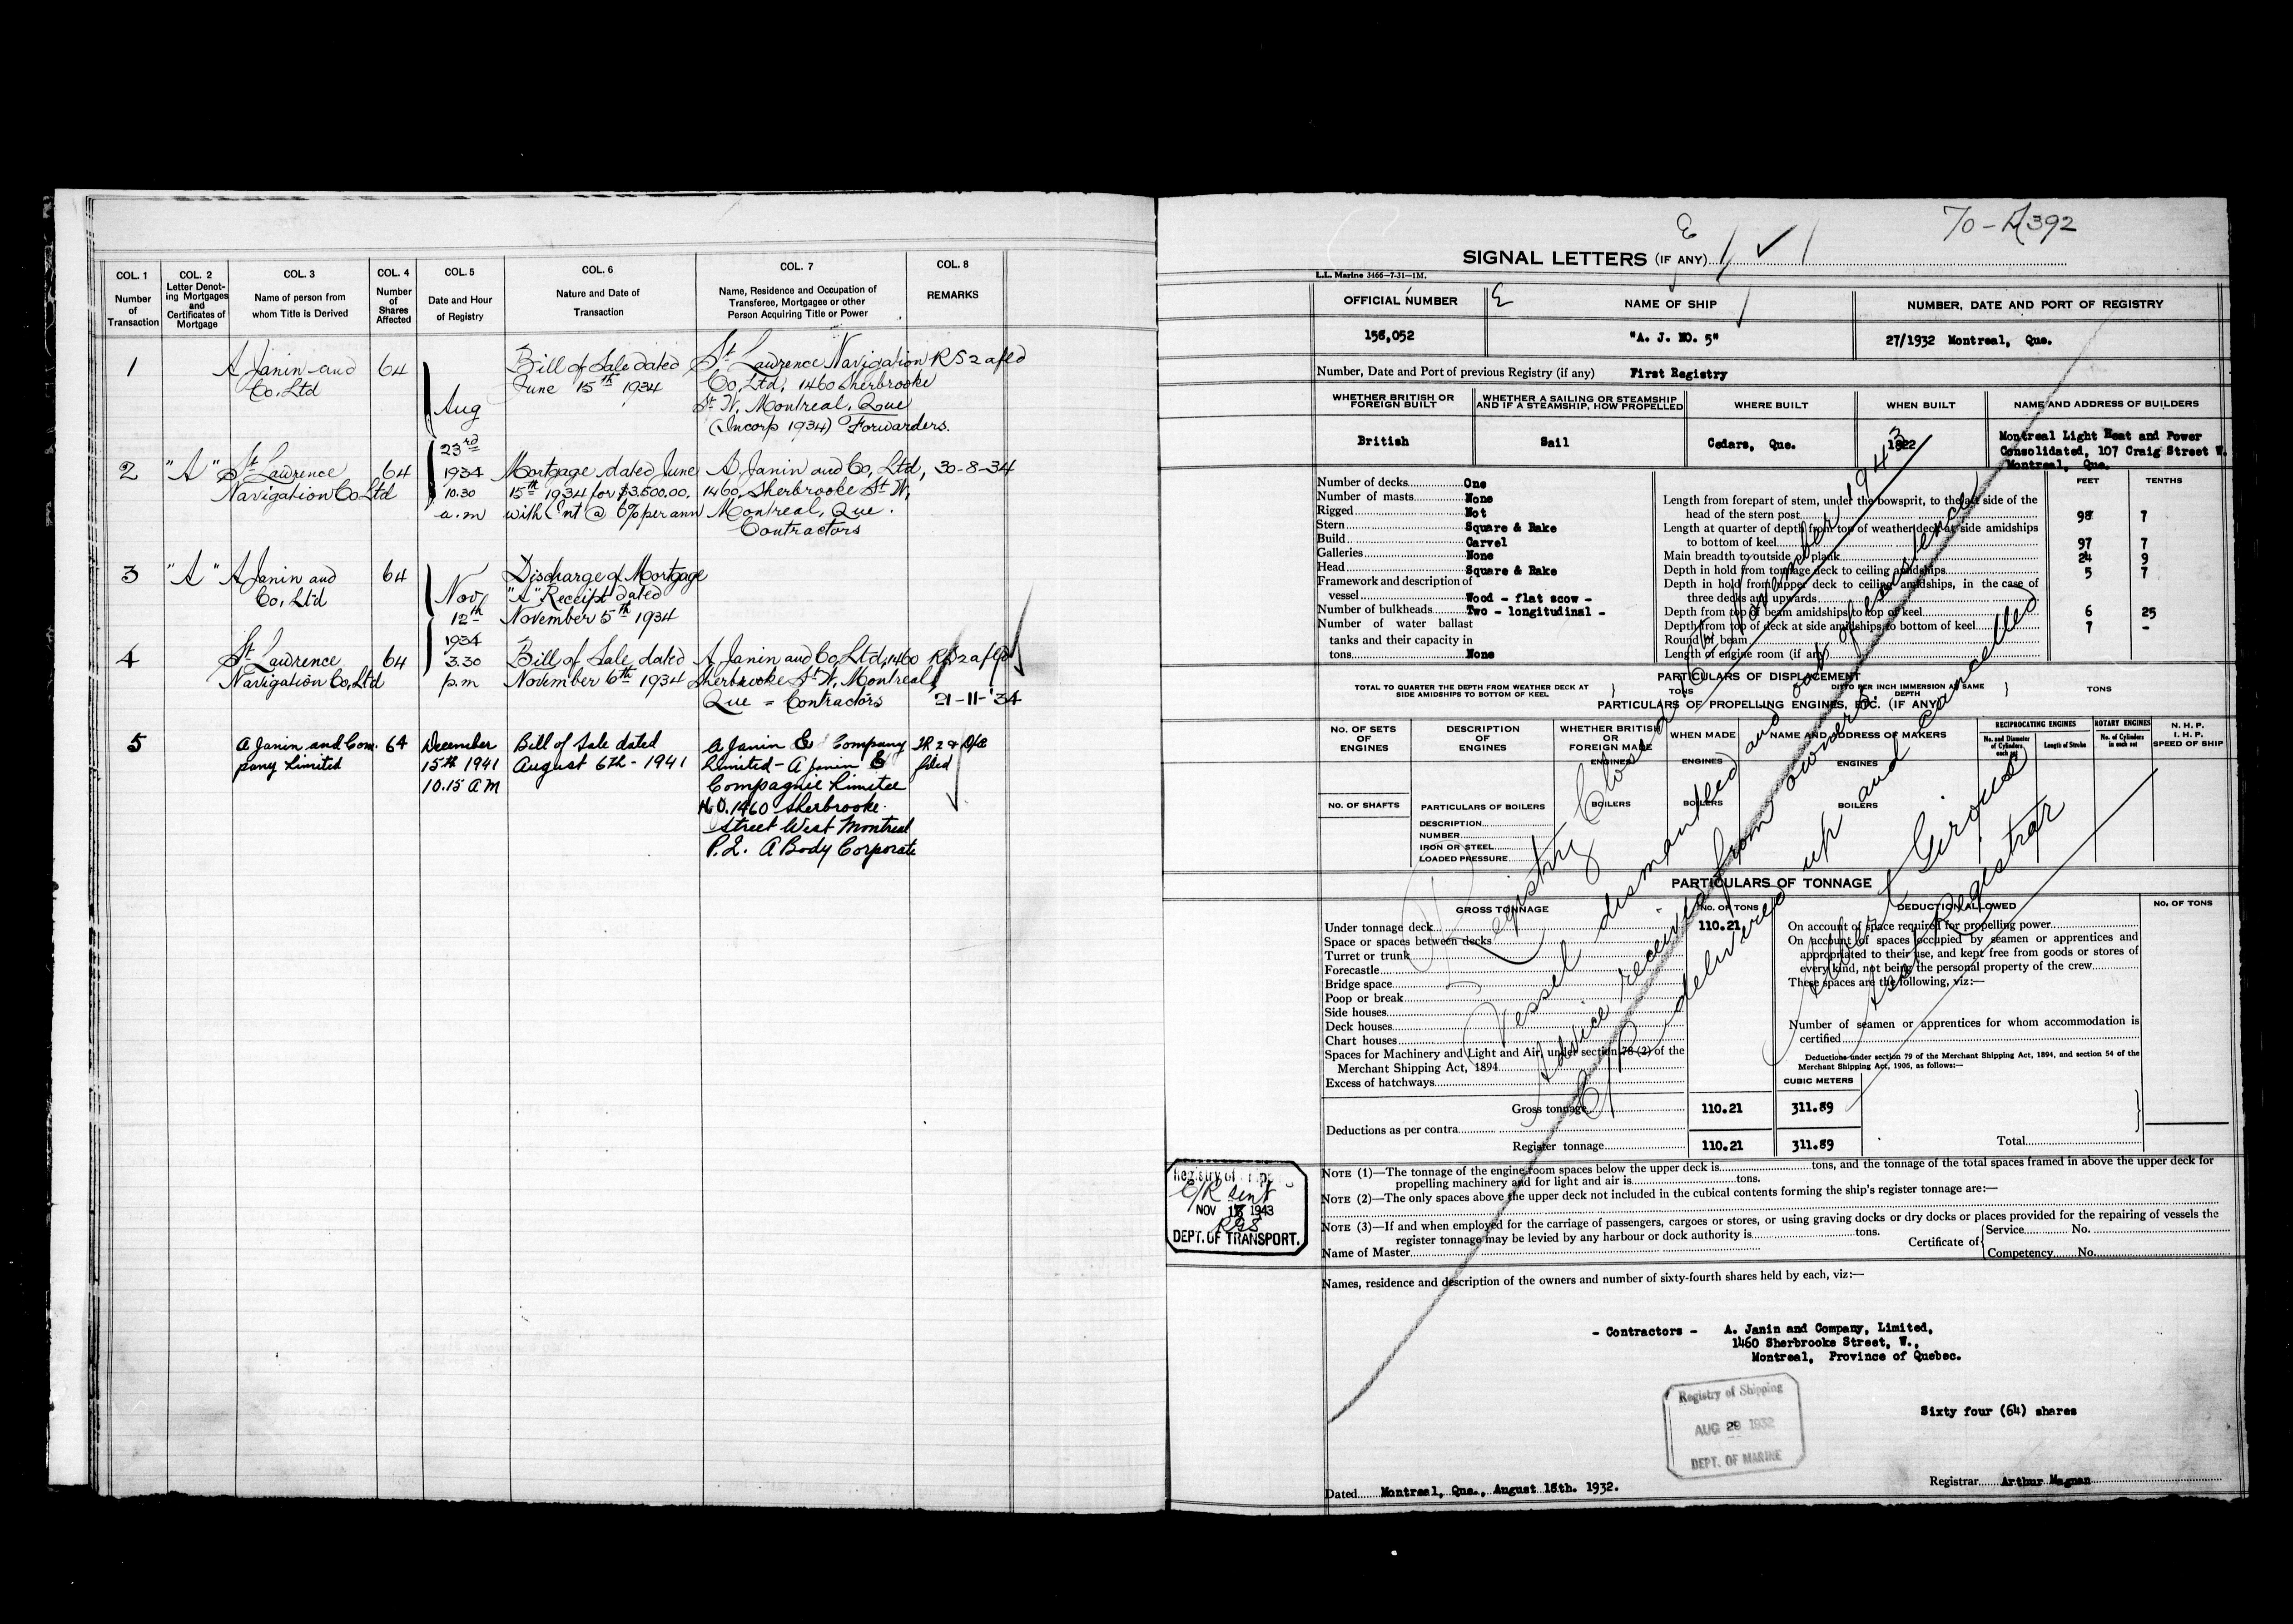 COL. 1
Number
of
Transaction
COL. 2
Letter Denot-
ing Mortgages
and
Certificates of
Mortgage
COL. 3
Name of person from
whom Title is Derived
COL. 4
Number
of
Shares
Affected
COL. 5
Date and Hour
of Registry
COL. 6
Nature and Date of
Transaction
COL. 7
Name, Residence and Occupation of
Transferee, Mortgagee or other
Person Acquiring Title or Power
COL. 8
REMARKS
1
A Janin and
Co. Ltd
64
Aug
23rd
1934
10.30
a.m
Bill of Sale dated
June 15th 1934
St Lawrence Navigation
Co, Ltd, 1460 Sherbrooke
St W, Montreal, Que
(Incorp 1934) Forwarders.
RS 2 afld
2
"A"
St Lawrence
Navigation Co Ltd
64
Mortgage dated June
15th 1934 for $3,500.00.
with Int @ 6% per ann
A. Janin and Co, Ltd,
1460 Sherbrooke St W,
Montreal, Que.
Contractors
30-8-34
3
"A"
A Janin and
Co, Ltd
64
Nov
12th
1934
3.30
p.m
Discharge of Mortgage
"A" Receipt dated
November 5th 1934
4
St Lawrence
Navigation Co, Ltd
64
Bill of Sale dated
November 6th 1934
A Janin and Co, Ltd, 1460
Sherbrooke St W, Montreal
Que = Contractors
RS 2 afld
21-11-'34
5
A Janin and Com-
pany Limited
64
December
15th 1941
10.15 A M
Bill of Sale dated
August 6th - 1941
A Janin & Company
Limited - A Janin &
Compagnie Limitee
No. 1460 Sherbrooke
Street West Montreal
P.Q. A Body Corporate
filed
70-A392
SIGNAL LETTERS (IF ANY)
L.L. Marine 3466-7-31-1M.
OFFICIAL NUMBER
NAME OF SHIP
NUMBER, DATE AND PORT OF REGISTRY
156,052
"A. J. NO. 5"
27/1932 Montreal, Que.
Number, Date and Port of previous Registry (if any) First Registry
WHETHER BRITISH OR
FOREIGN BUILT
WHETHER A SAILING OR STEAMSHIP
AND IF A STEAMSHIP, HOW PROPELLED
WHERE BUILT
WHEN BUILT
NAME AND ADDRESS OF BUILDERS
British
Sail
Cedars, Que.
Montreal Light Heat and Power
Consolidated, 107 Craig Street W.
Montreal, Que.
Number of decks One
Number of masts None
Rigged Not
Stern Square & Rake
Build Carvel
Galleries None
Head Square & Rake
Framework and description of
vessel Wood - flat scow -
Number of bulkheads Two - longitudinal -
Number of water ballast
tanks and their capacity in
tons None
FEET
TENTHS
Length from forepart of stem, under the bowsprit, to the aft side of the
head of the stern post 98 7
Length at quarter of depth from top of weather deck at side amidships
to bottom of keel 97 7
Main breadth to outside of plank 24 9
Depth in hold from tonnage deck to ceiling amidships 5 7
Depth in hold from upper deck to ceiling amidships, in the case of
three decks and upwards
Depth from top of beam amidships to top of keel 6 25
Depth from top of deck at side amidships to bottom of keel 7 -
Round of beam
Length of engine room (if any)
PARTICULARS OF DISPLACEMENT
TOTAL TO QUARTER THE DEPTH FROM WEATHER DECK AT
SIDE AMIDSHIPS TO BOTTOM OF KEEL
TONS
DITTO PER INCH IMMERSION AT SAME
DEPTH
TONS
PARTICULARS OF PROPELLING ENGINES, ETC. (IF ANY)
NO. OF SETS
OF
ENGINES
DESCRIPTION
OF
ENGINES
WHETHER BRITISH
OR
FOREIGN MADE
WHEN MADE
NAME AND ADDRESS OF MAKERS
RECIPROCATING ENGINES
No. and Diameter
of Cylinders
each set
Length of Stroke
ROTARY ENGINES
No. of Cylinders
in each set
N. H. P.
I. H. P.
SPEED OF SHIP
ENGINES
ENGINES
ENGINES
NO. OF SHAFTS
PARTICULARS OF BOILERS
BOILERS
BOILERS
BOILERS
DESCRIPTION
NUMBER
IRON OR STEEL
LOADED PRESSURE
Registry Closed November 1943
Vessel dismantled and out of existence
Advice received from owners.
C/R delivered up and cancelled
Giroux
Asst Registrar
PARTICULARS OF TONNAGE
GROSS TONNAGE
NO. OF TONS
DEDUCTION ALLOWED
NO. OF TONS
Under tonnage deck 110.21
Space or spaces between decks
Turret or trunk
Forecastle
Bridge space
Poop or break
Side houses
Deck houses
Chart houses
Spaces for Machinery and Light and Air, under section 78 (2) of the
Merchant Shipping Act, 1894
Excess of hatchways
On account of space required for propelling power
On account of spaces occupied by seamen or apprentices and
appropriated to their use, and kept free from goods or stores of
every kind, not being the personal property of the crew
These spaces are the following, viz:—
Number of seamen or apprentices for whom accommodation is
certified
Deductions under section 79 of the Merchant Shipping Act, 1894, and section 54 of the
Merchant Shipping Act, 1906, as follows:—
CUBIC METERS
Gross tonnage 110.21 311.89
Deductions as per contra
Register tonnage 110.21 311.89
Total
Registry of Shipping
C/R sent
NOV 1943
RGS
DEPT. OF TRANSPORT.
NOTE (1)—The tonnage of the engine room spaces below the upper deck is tons, and the tonnage of the total spaces framed in above the upper deck for
propelling machinery and for light and air is tons.
NOTE (2)—The only spaces above the upper deck not included in the cubical contents forming the ship's register tonnage are:—
NOTE (3)—If and when employed for the carriage of passengers, cargoes or stores, or using graving docks or dry docks or places provided for the repairing of vessels the
register tonnage may be levied by any harbour or dock authority is tons.
Name of Master
Certificate of
Service No.
Competency No.
Names, residence and description of the owners and number of sixty-fourth shares held by each, viz:—
- Contractors - A. Janin and Company, Limited,
1460 Sherbrooke Street, W.,
Montreal, Province of Quebec.
Sixty four (64) shares
Registry of Shipping
AUG 29 1932
DEPT. OF MARINE
Dated Montreal, Que., August 18th. 1932.
Registrar Arthur Magnan